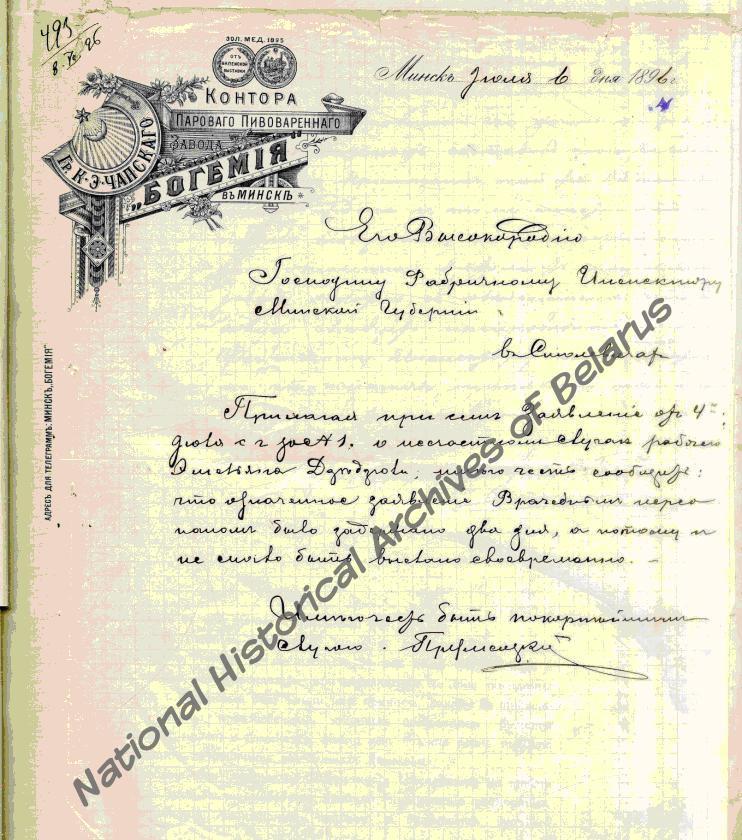 493
8 VII 96
ЗОЛ. МЕД. 1895
КОНТОРА
ПАРОВАГО ПИВОВАРЕННАГО
ЗАВОДА
ГР. К. Э. ЧАПСКАГО
„БОГЕМІЯ"
ВЪ МИНСКѢ
Минскъ Іюля 6 дня 1896 г.
Его Высокородію
Господину Фабричному Инспектору
Минской Губерніи
въ Смолевичах
АДРЕСЪ ДЛЯ ТЕЛЕГРАММЪ: МИНСКЪ, БОГЕМІЯ"
Прилагая при семъ Заявленіе отъ 4го
Іюля с г за № 1. о несчастномъ случаѣ рабочего
имѣю честь сообщить:
что означенное заявленіе Врачебнымъ персо
наломъ было задержано два дня, а потому и
не могло быть выслано своевременно. –
Имѣю честь быть покорнѣйшимъ
слугою.
National Historical Archives of Belarus